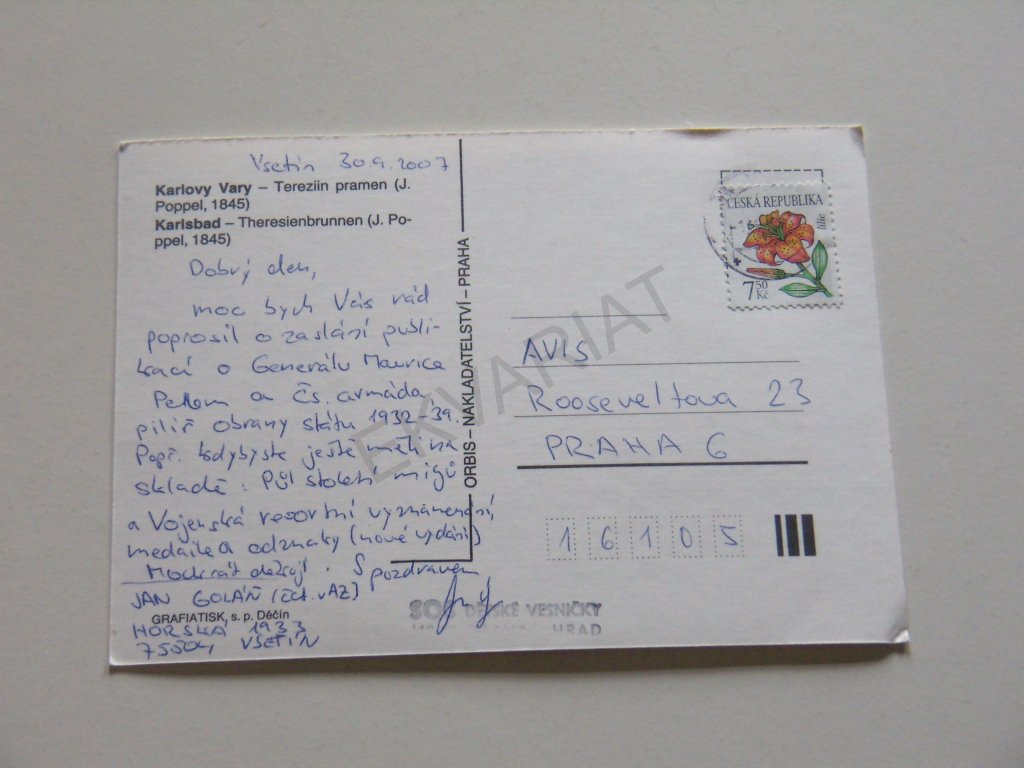 Vsetín 30.9.2007
Karlovy Vary – Tereziin pramen (J.
Poppel, 1845)
Karlsbad – Theresienbrunnen (J. Po-
ppel, 1845)
Dobrý den,
moc bych Vás rád
poprosil o zaslání publi-
kací o Generálu Maurice
Pellém a Čs. armáda
pilíř obrany státu 1932-39.
Popř. kdybyste ještě měli na
skladě: Půl století migů
a Vojenská resortní vyznamenání,
medaile a odznaky (nové vydání)
Mockrát děkuji. S pozdravem
JAN GOLÁŇ (čet. v AZ)
GRAFIATISK, s. p. Děčín
HORSKÁ 1933
75501 VSETÍN
ORBIS – NAKLADATELSTVÍ – PRAHA
ČESKÁ REPUBLIKA
lilie
7 50
Kč
AVIS
Rooseveltova 23
PRAHA 6
1 6 1 0 5
SOS DĚTSKÉ VESNIČKY
HRAD
EKVARIAT